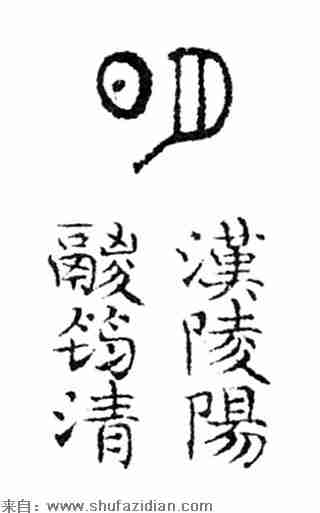 明
漢陵陽
鬷筠清
来自：www.shufazidian.com